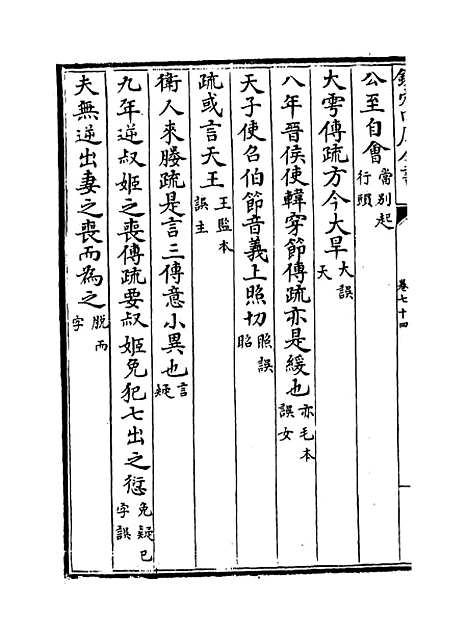 欽定四庫全書
卷七十四
公至自會當別起行頭
大雩傳疏方今大旱大誤天
八年晉侯使韓穿節傳疏亦是緩也亦毛本誤女
天子使召伯節音義上照切照誤昭
疏或言天王王監本誤主
衛人來媵疏是言三傳意小異也言疑
九年逆叔姬之喪傳疏要叔姬免犯七出之愆免疑已字誤
夫無逆出妻之喪而為之脫而字